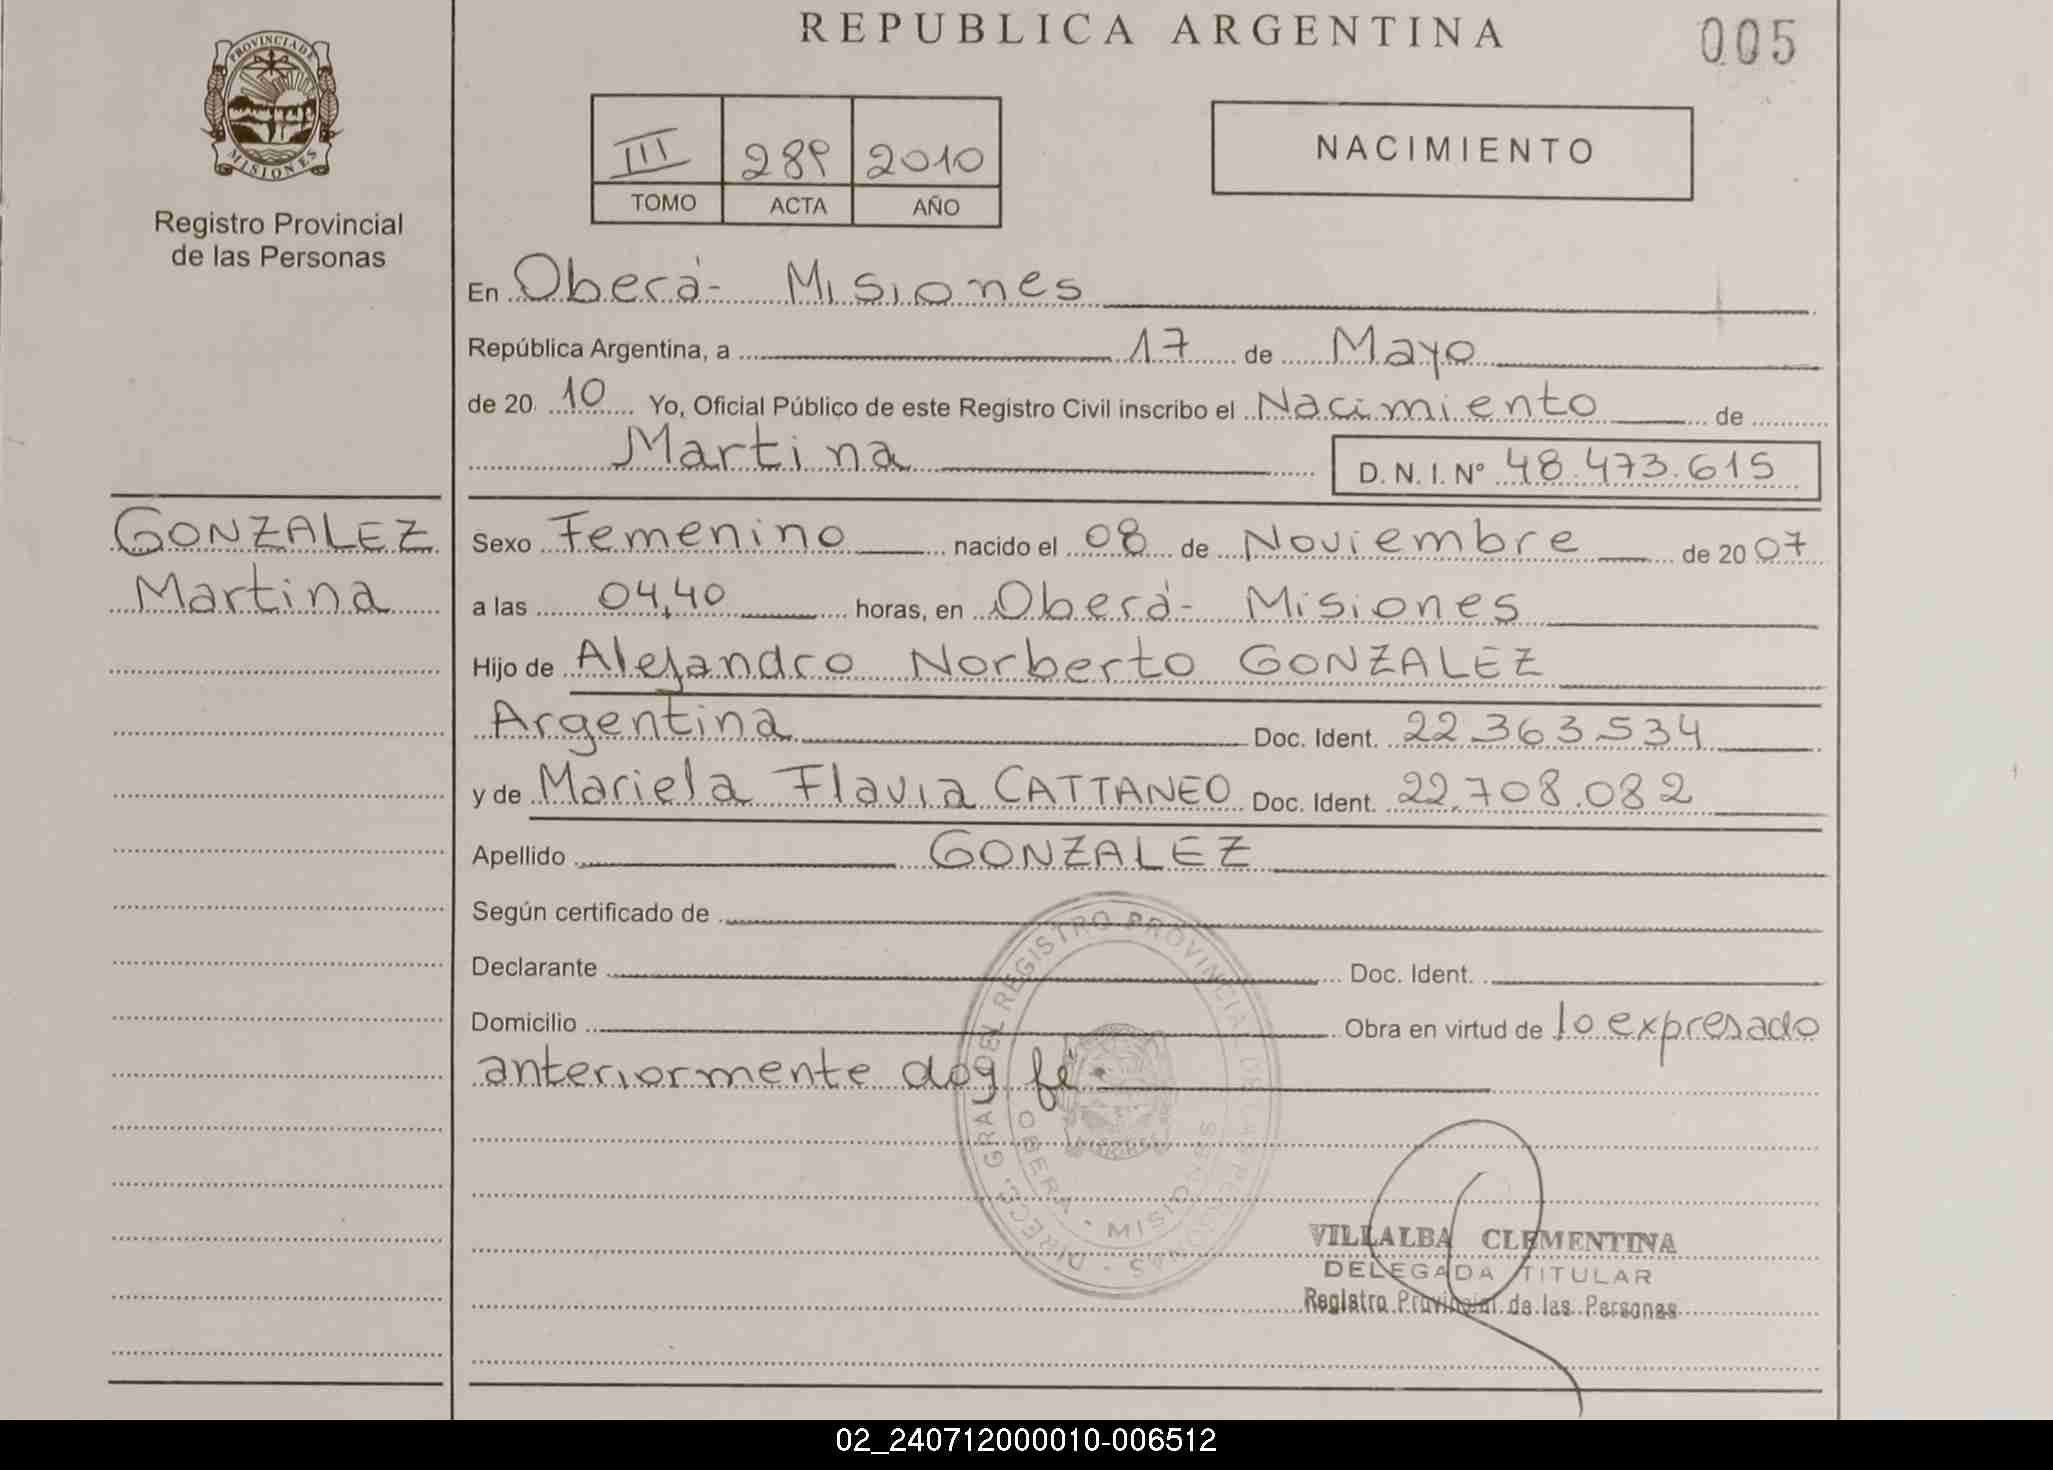 REPUBLICA ARGENTINA
005
PROVINCIA DE
MISIONES
Registro Provincial
de las Personas
III 289 2010
TOMO ACTA AÑO
NACIMIENTO
En Oberá- Misiones
República Argentina, a 17 de Mayo
de 20 10 Yo, Oficial Público de este Registro Civil inscribo el Nacimiento de
Martina D. N. I. Nº 48.473.615
GONZALEZ
Martina
Sexo Femenino nacido el 08 de Noviembre de 20 07
a las 04,40 horas, en Oberá- Misiones
Hijo de Alejandro Norberto GONZALEZ
Argentina Doc. Ident. 22.363.534
y de Mariela Flavia CATTANEO Doc. Ident. 22.708.082
Apellido GONZALEZ
Según certificado de
Declarante Doc. Ident.
Domicilio Obra en virtud de lo expresado
anteriormente doy fé.
DIRECC. GRAL DEL REGISTRO PROVINCIAL DE LAS PERSONAS
OBERA - MISIONES
VILLALBA CLEMENTINA
DELEGADA TITULAR
Registro Provincial de las Personas
02_240712000010-006512